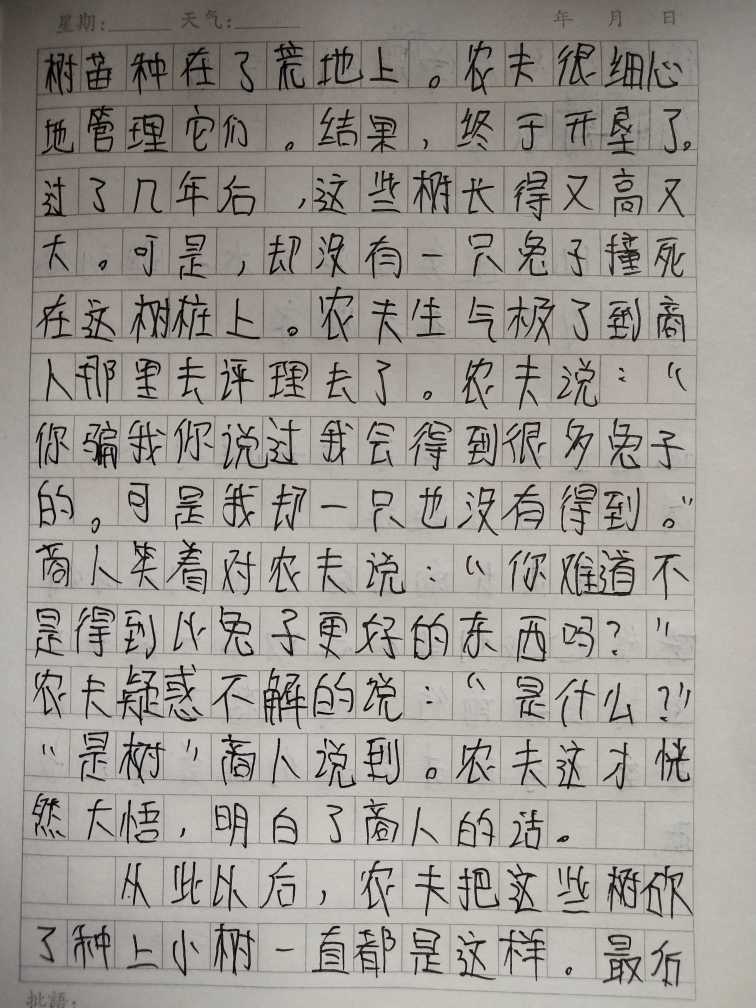 星期:______ 天气:______ 年 月 日
树苗种在了荒地上。农夫很细心
地管理它们。结果,终于开垦了。
过了几年后,这些树长得又高又
大。可是,却没有一只兔子撞死
在这树桩上。农夫生气极了到商
人那里去评理去了。农夫说:“
你骗我你说过我会得到很多兔子
的。可是我却一只也没有得到。”
商人笑着对农夫说:“你难道不
是得到比兔子更好的东西吗?”
农夫疑惑不解的说:“是什么?”
“是树”商人说到。农夫这才恍
然大悟,明白了商人的话。
从此以后,农夫把这些树砍
了种上小树一直都是这样。最后
批語: